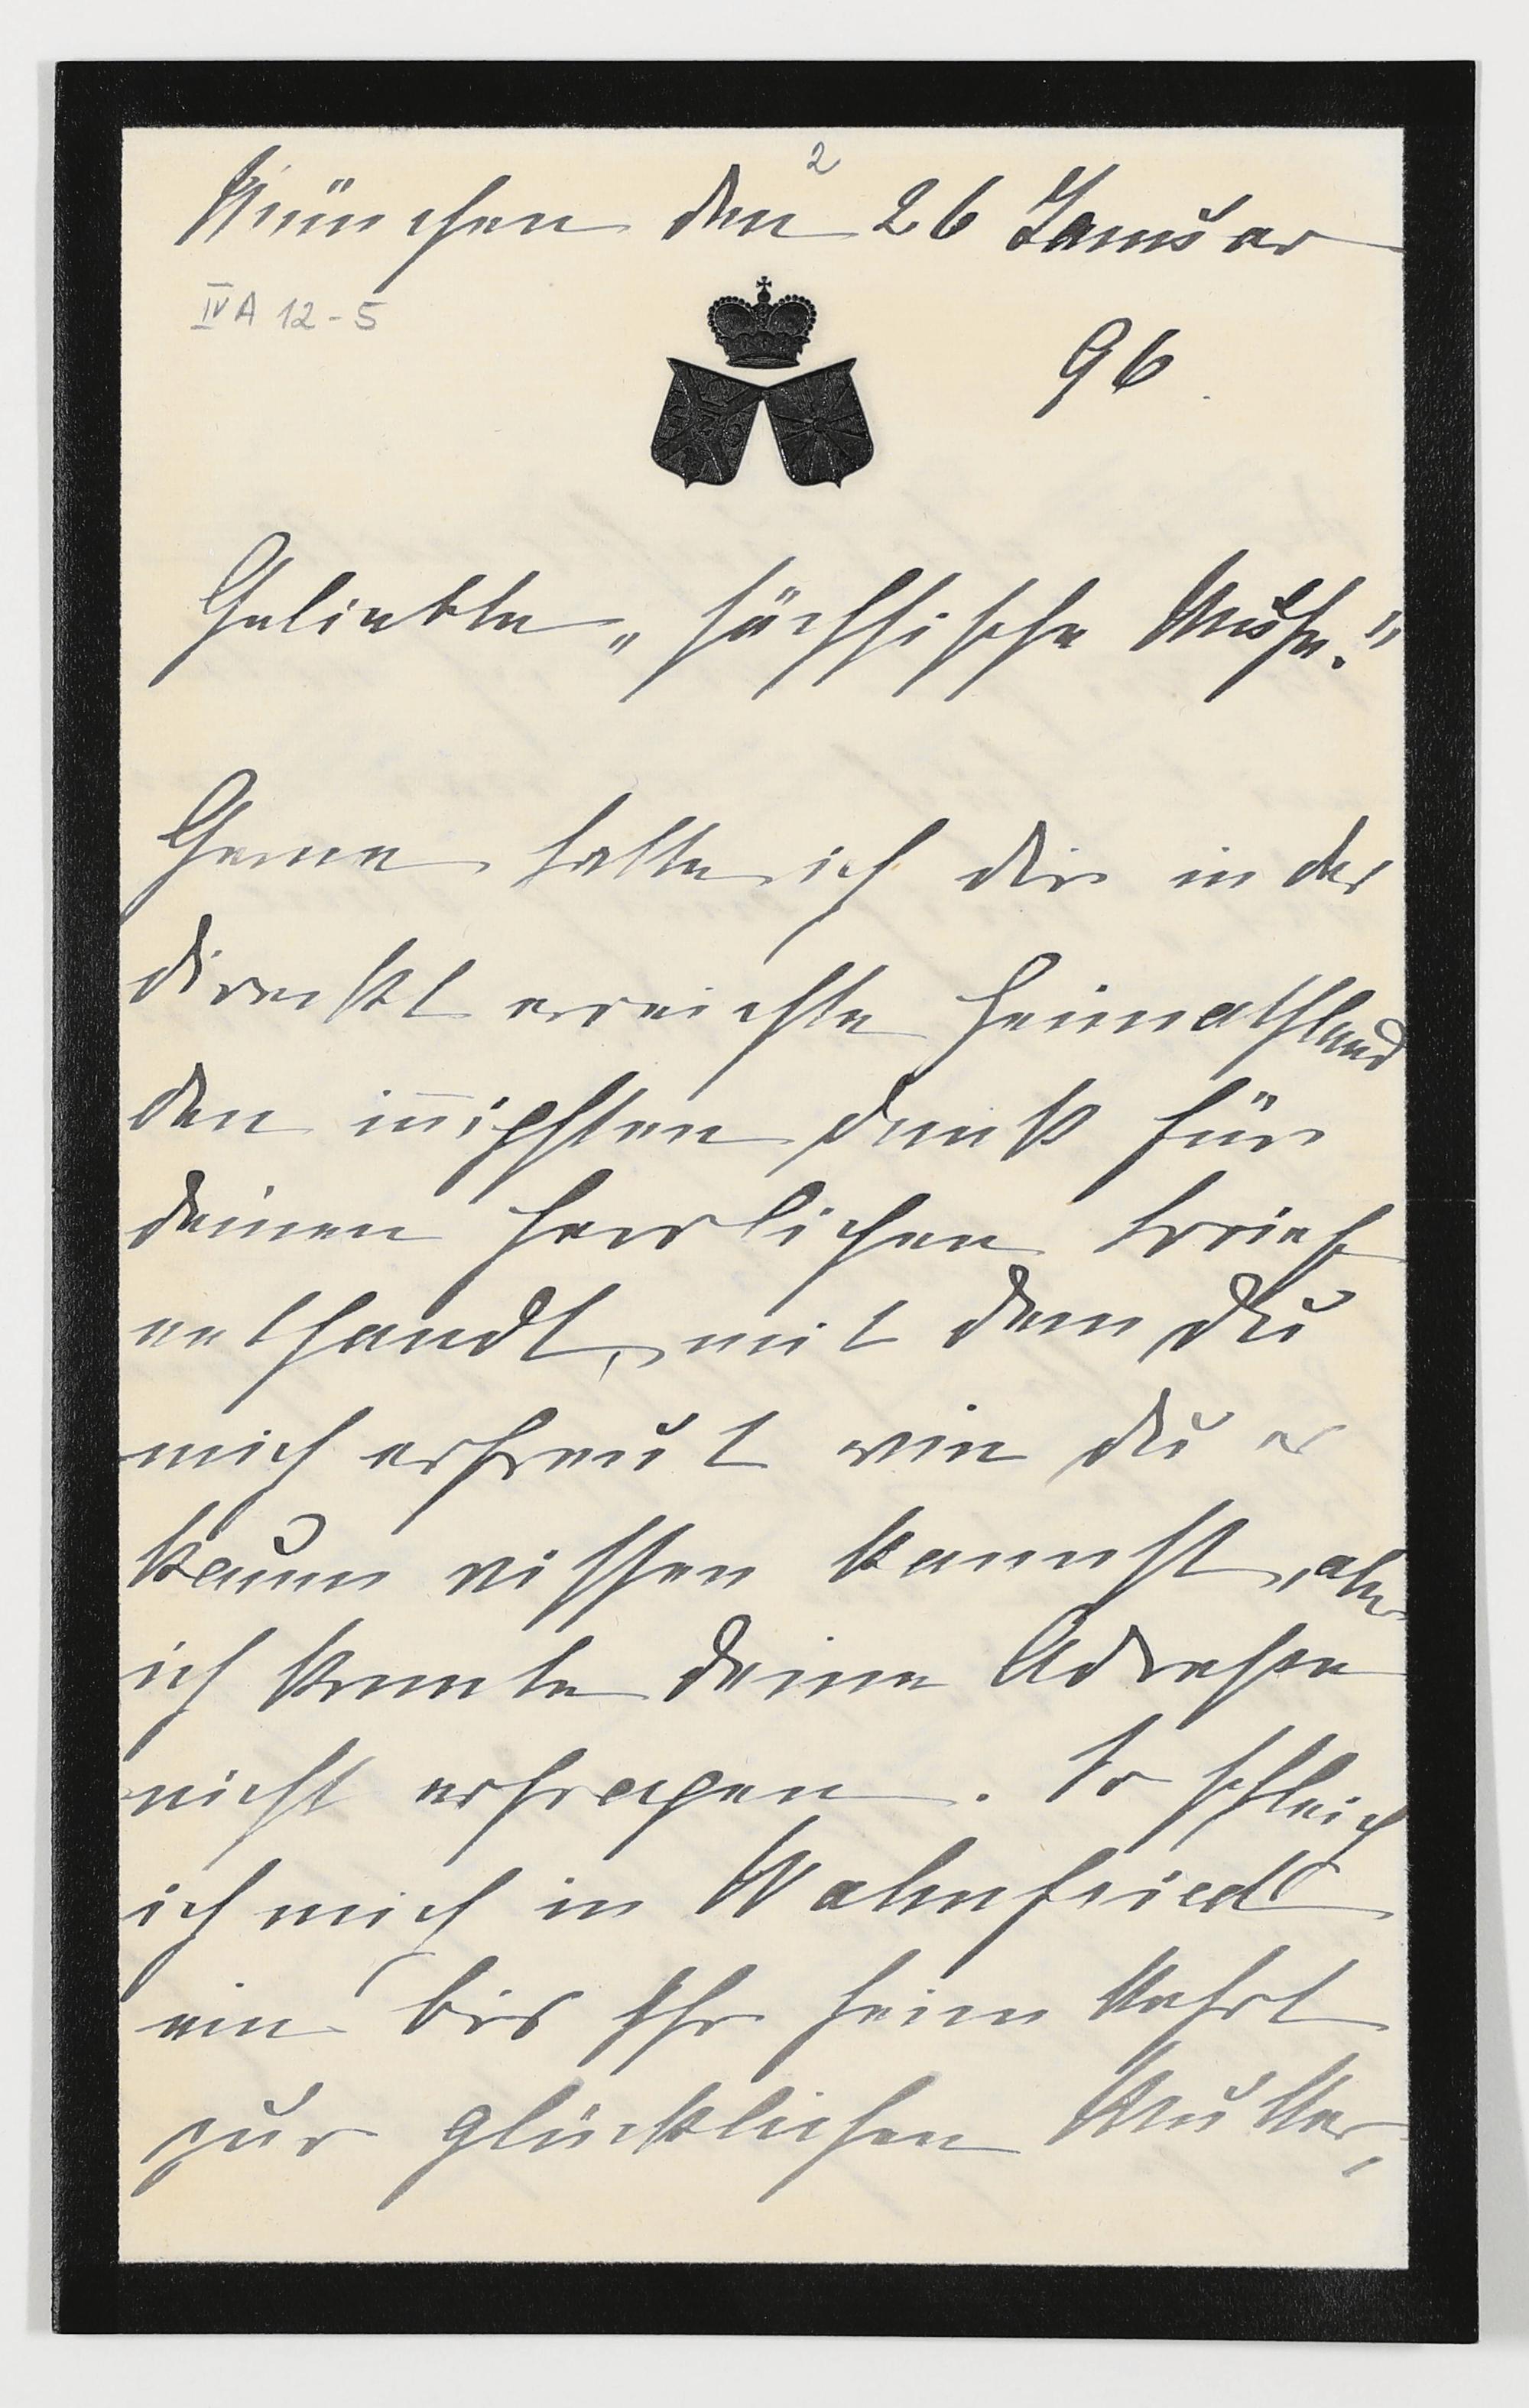 2
München den 26 Januar
IV A 12-5
96.
Geliebte „sächsische Muse."
Gerne hätte ich dir in das
direckt erreichte Heimathland
den iñigsten Dank für
deinen herrlichen Brief
entsandt, mit dem du
mich erfreut wie du es
kaum wissen kannst, aber
ich konnte deine Adresse
nicht erfragen. So schleich
ich mich in Wahnfried
ein bis Ihr heim kehrt
zur glücklichen Mutter,